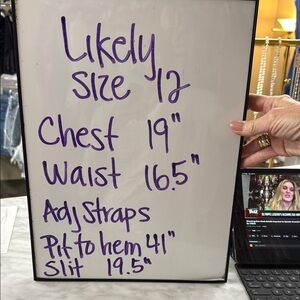 Likely
Size 12
Chest 19"
Waist 16.5"
Adj Straps
Pit to hem 41"
Slit 19.5"